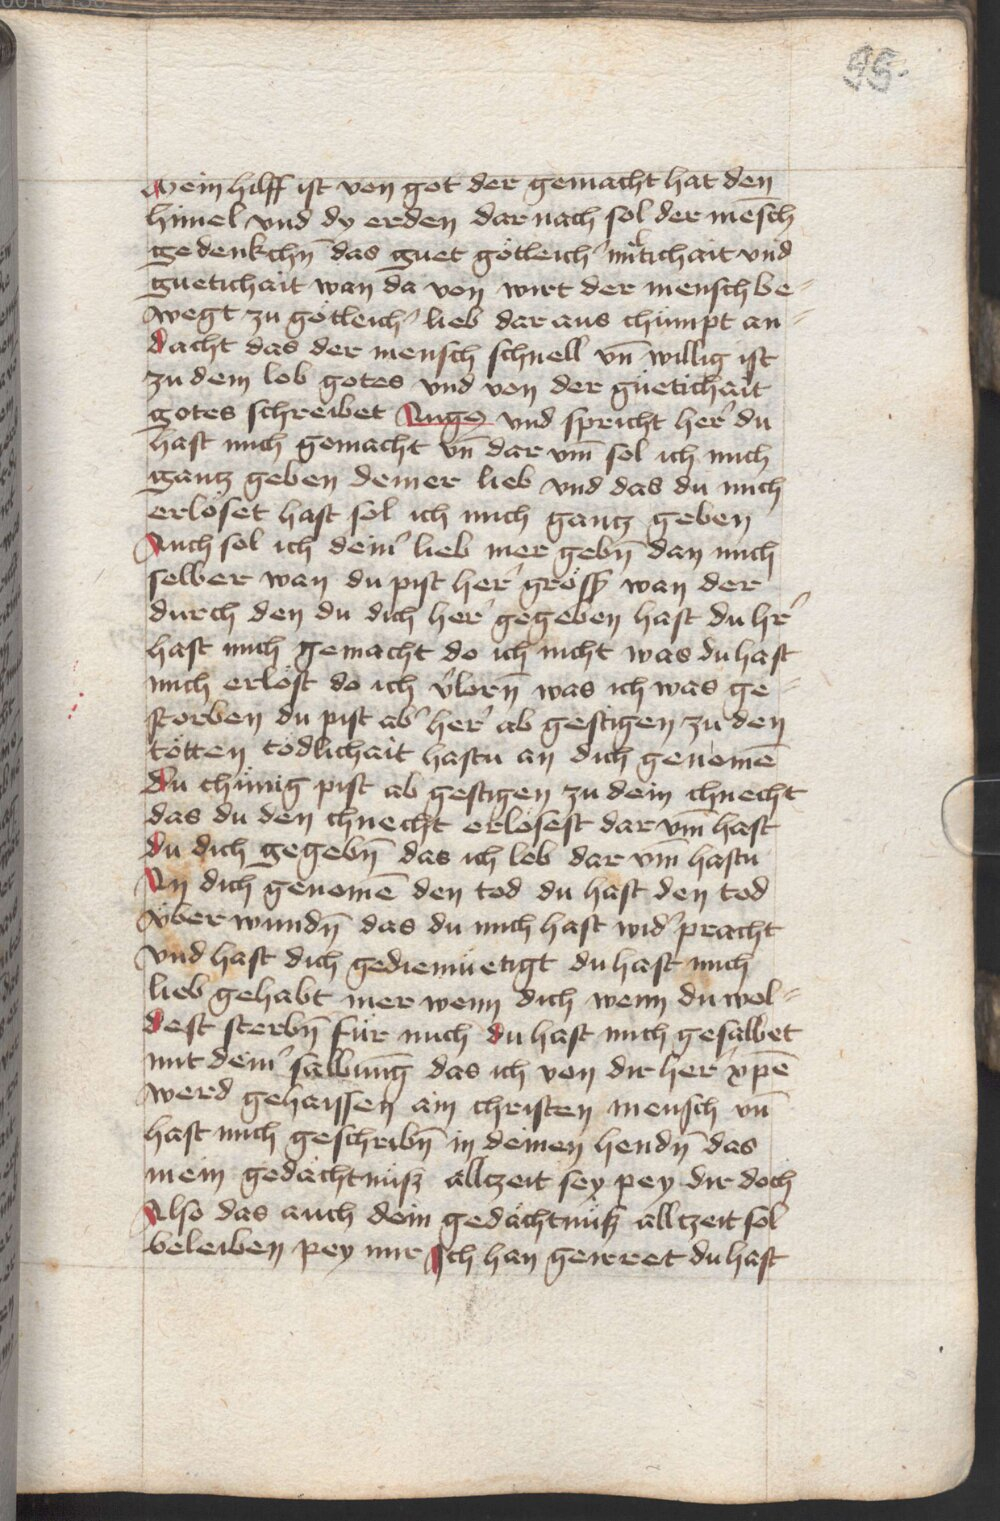 95.
Mein hilff ist von got der gemacht hat den
himel vnd dy erden dar nach sol der mẽsch
gedenkchñ das guet götleich' miltichait vnd
guetichait wan da von wirt der mensch be=
wegt zu götleich' lieb dar aus chümpt an=
dacht das der mensch schnell vñ willig ist
zu dem lob gotes vnd von der güetichait
gotes schreibet Augꝰ vnd spricht her' du
hast mich gemacht vñ dar vm̃ sol ich mich
gantz geben deiner lieb vnd das du mich
erlöset hast sol ich mich gantz geben
Auch sol ich deim' lieb mer gebñ dan mich
selber wan du pist her' grösß wan der
durch den du dich her' gegeben hast du hr'
hast mich gemacht do ich nicht was du hast
mich erlöst do ich v'lorñ was ich was ge=
storben du pist ab' her' ab gestigen zu den
tötten tödlichait hastu an dich genomẽ
du chünig pist ab gestigen zu dem chnecht
das du den chnecht erlösest dar vm̃ hast
du dich gegebñ das ich leb dar vm̃ hastu
An dich genomẽ den tod du hast den tod
vber wundñ das du mich hast wid' pracht
vnd hast dich gediemüetigt du hast mich
lieb gehabt mer wenn dich wenn du wol=
dest sterbñ für mich du hast mich gesalbet
mit deim' salbung das ich von dir her' xp̃e
werd gehaissen ain christen mensch vñ
hast mich geschribñ in deinen hendñ das
mein gedächtnüß alltzeit sey pey dir doch
Also das auch dein gedächtnüß alltzeit sol
beleiben pey mir Ich han geirret du hast